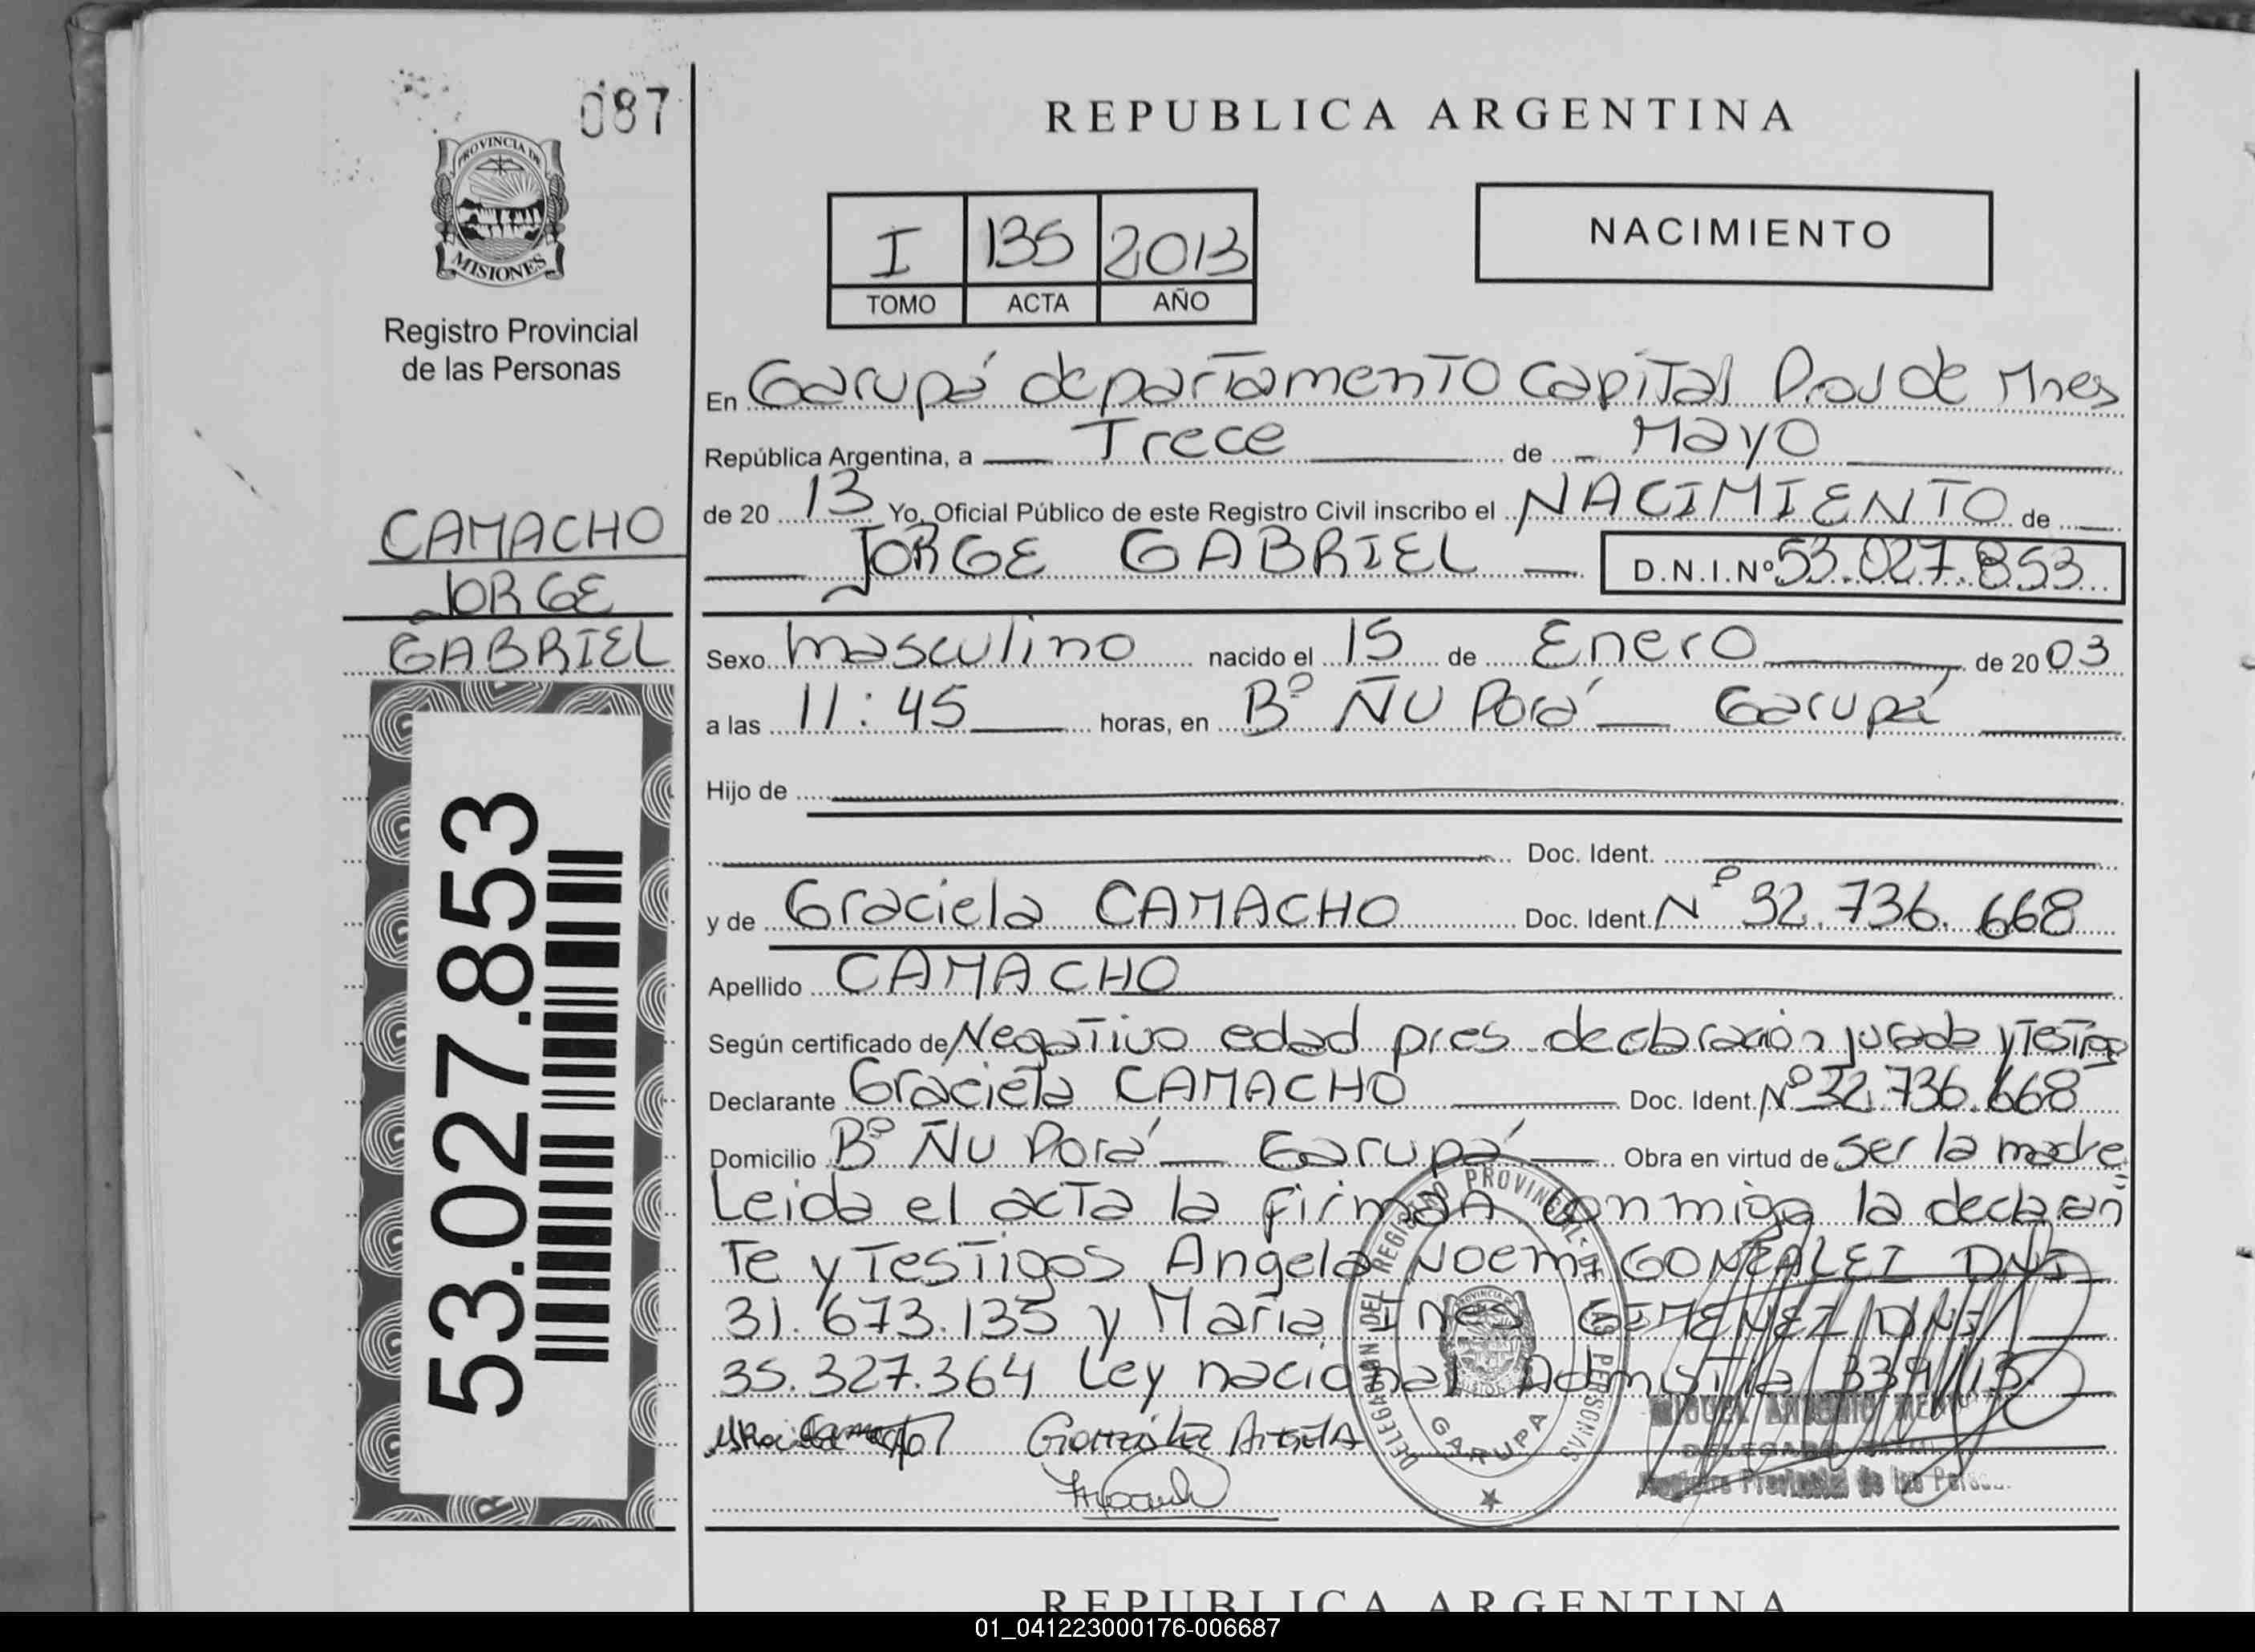 087
PROVINCIA DE
MISIONES
Registro Provincial
de las Personas
CAMACHO
JORGE
GABRIEL
53.027.853
REPUBLICA ARGENTINA
I 135 2013
TOMO ACTA AÑO
NACIMIENTO
En Garupá departamento Capital Prov de Mnes
República Argentina, a Trece de Mayo
de 20 13 Yo, Oficial Público de este Registro Civil inscribo el NACIMIENTO de
JORGE GABRIEL D.N.I.Nº 53.027.853
Sexo masculino nacido el 15 de Enero de 20 03
a las 11:45 horas, en Bº ÑU Porá Garupá
Hijo de
Doc. Ident.
y de Graciela CAMACHO Doc. Ident. Nº 32.736.668
Apellido CAMACHO
Según certificado de Negativo edad pres declaración jurada y Testigos
Declarante Graciela CAMACHO Doc. Ident. Nº 32.736.668
Domicilio Bº ÑU Porá Garupá Obra en virtud de ser la madre
Leida el acta la firman conmigo la declaran
Te y Testigos Angela Noemi GONZALEZ DNI
31.673.135 y Maria Ines GIMENEZ DNI
35.327.364 Ley nacional Admistia 339/13
González Angela
DELEGACION DEL REGISTRO PROVINCIAL DE LAS PERSONAS
PROVINCIA DE
MISIONES
GARUPA
MIGUEL ANTONIO
DELEGADO
Registro Provincial de las
REPUBLICA ARGENTINA
01_041223000176-006687